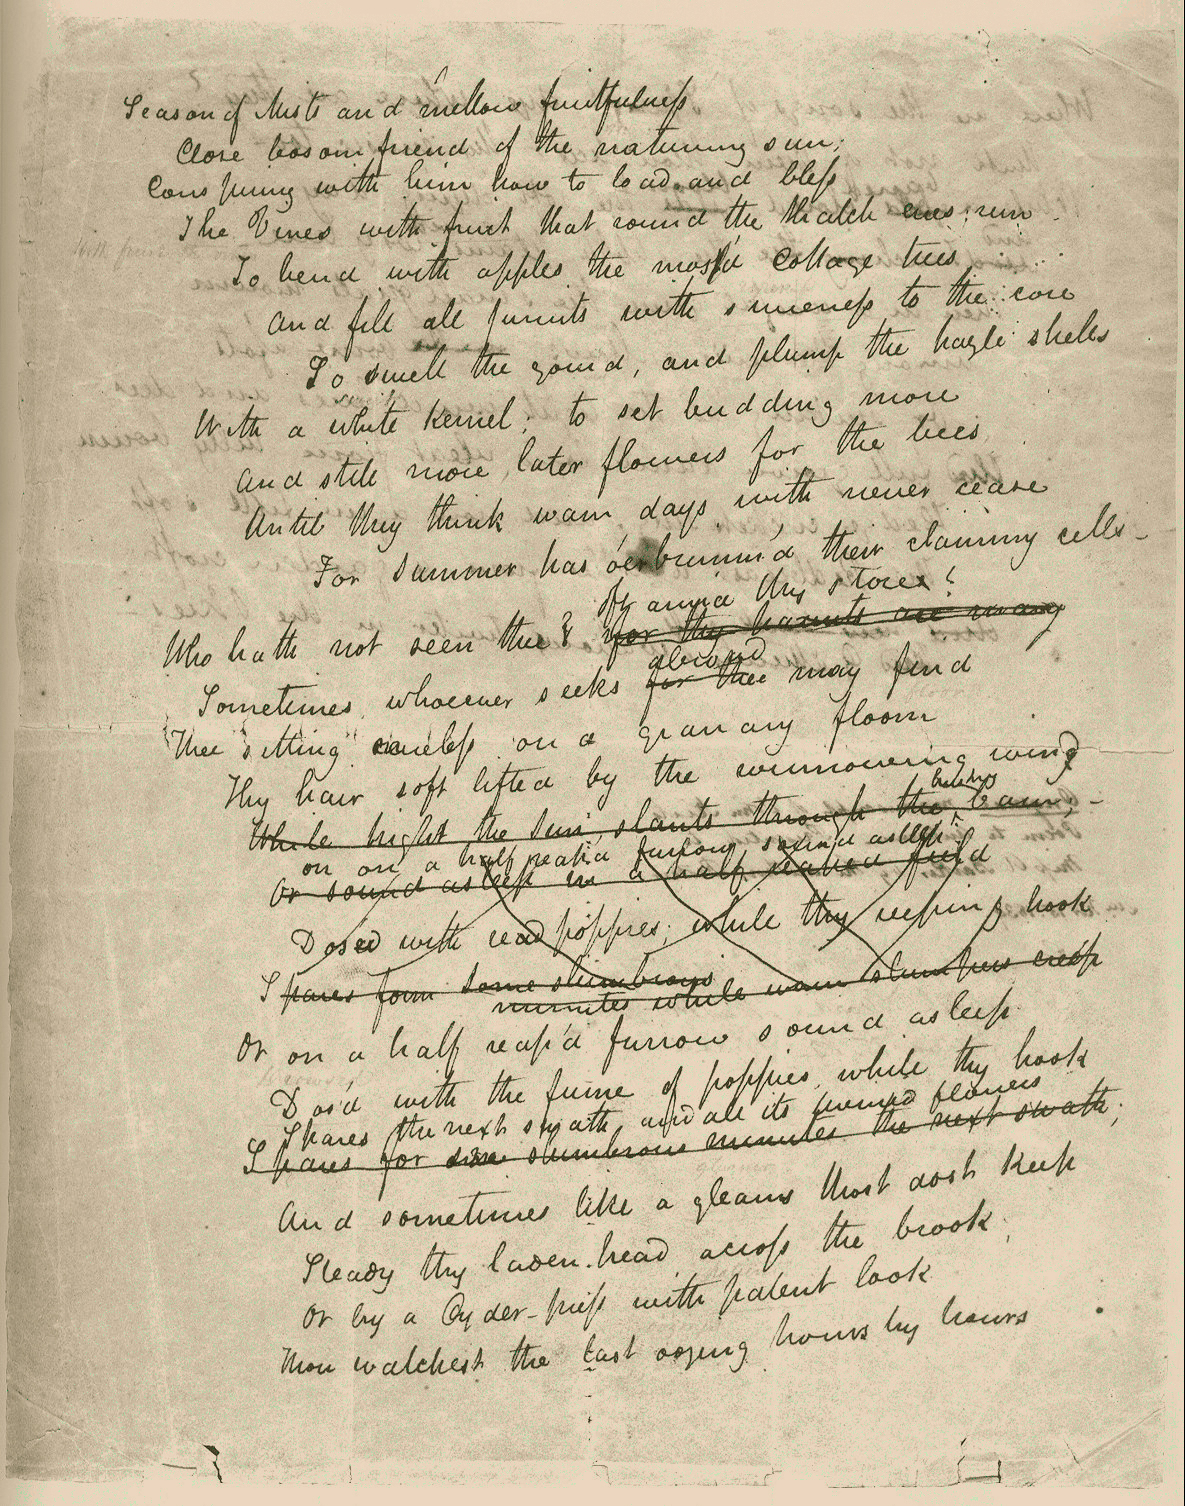 Season of Mists and mellow fruitfulness
Close bosom friend of the naturring sun;
Conspiring with him how to load and bless
The Vines with fruit that round the thatch eves run
To bend with apples the moss'd Cottage trees
And fill all furuits with sweeness to the core
To swell the gourd, and plump the hazle shells
With a white kernel; to set budding more
And still more later flowers for the bees
Until they think wam days with never cease
For Summer has o'erbrimm'd their clammy cells—
oft amid thy stores?
Who hath not seen thee for thy haunts are many
abroad
Sometimes whoever seeks for thee may find
Thee sitting careless on a granary floorr
Thy hair soft lifted by the winnowing wind
husky
While bright the Sun slants through the barn;—
on on a half reap'd furrow sound asleep
Or sound asleep in a half reaped field
Dosed with read poppies; while thy reeping hook
Spares form some slumbrous
minutes while wam slumpers creep
Or on a half reap'd furrow sound asleep
Dos'd with the fume of poppies, while thy hook
Spares the next swath and all its twined flowers
Spares for some slumbrous minutes the next swath;
And sometimes like a gleans thost dost keep
Steady thy laden head across the brook;
Or by a Cyder-press with patent look
Thou watchest the last oozing hours by hours